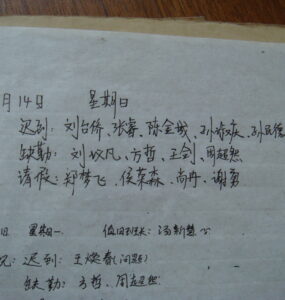 月14日 星期日
迟到: 刘台侨、张睿、陈金城、孙
缺勤: 刘以凡、方哲、王剑、周超然
请假: 郑梦飞、侯荣森、尚冉、谢勇
日 星期一 值日班长: 汤新慧
况: 迟到: 王焕春(问题)
缺勤: 方哲、周超然